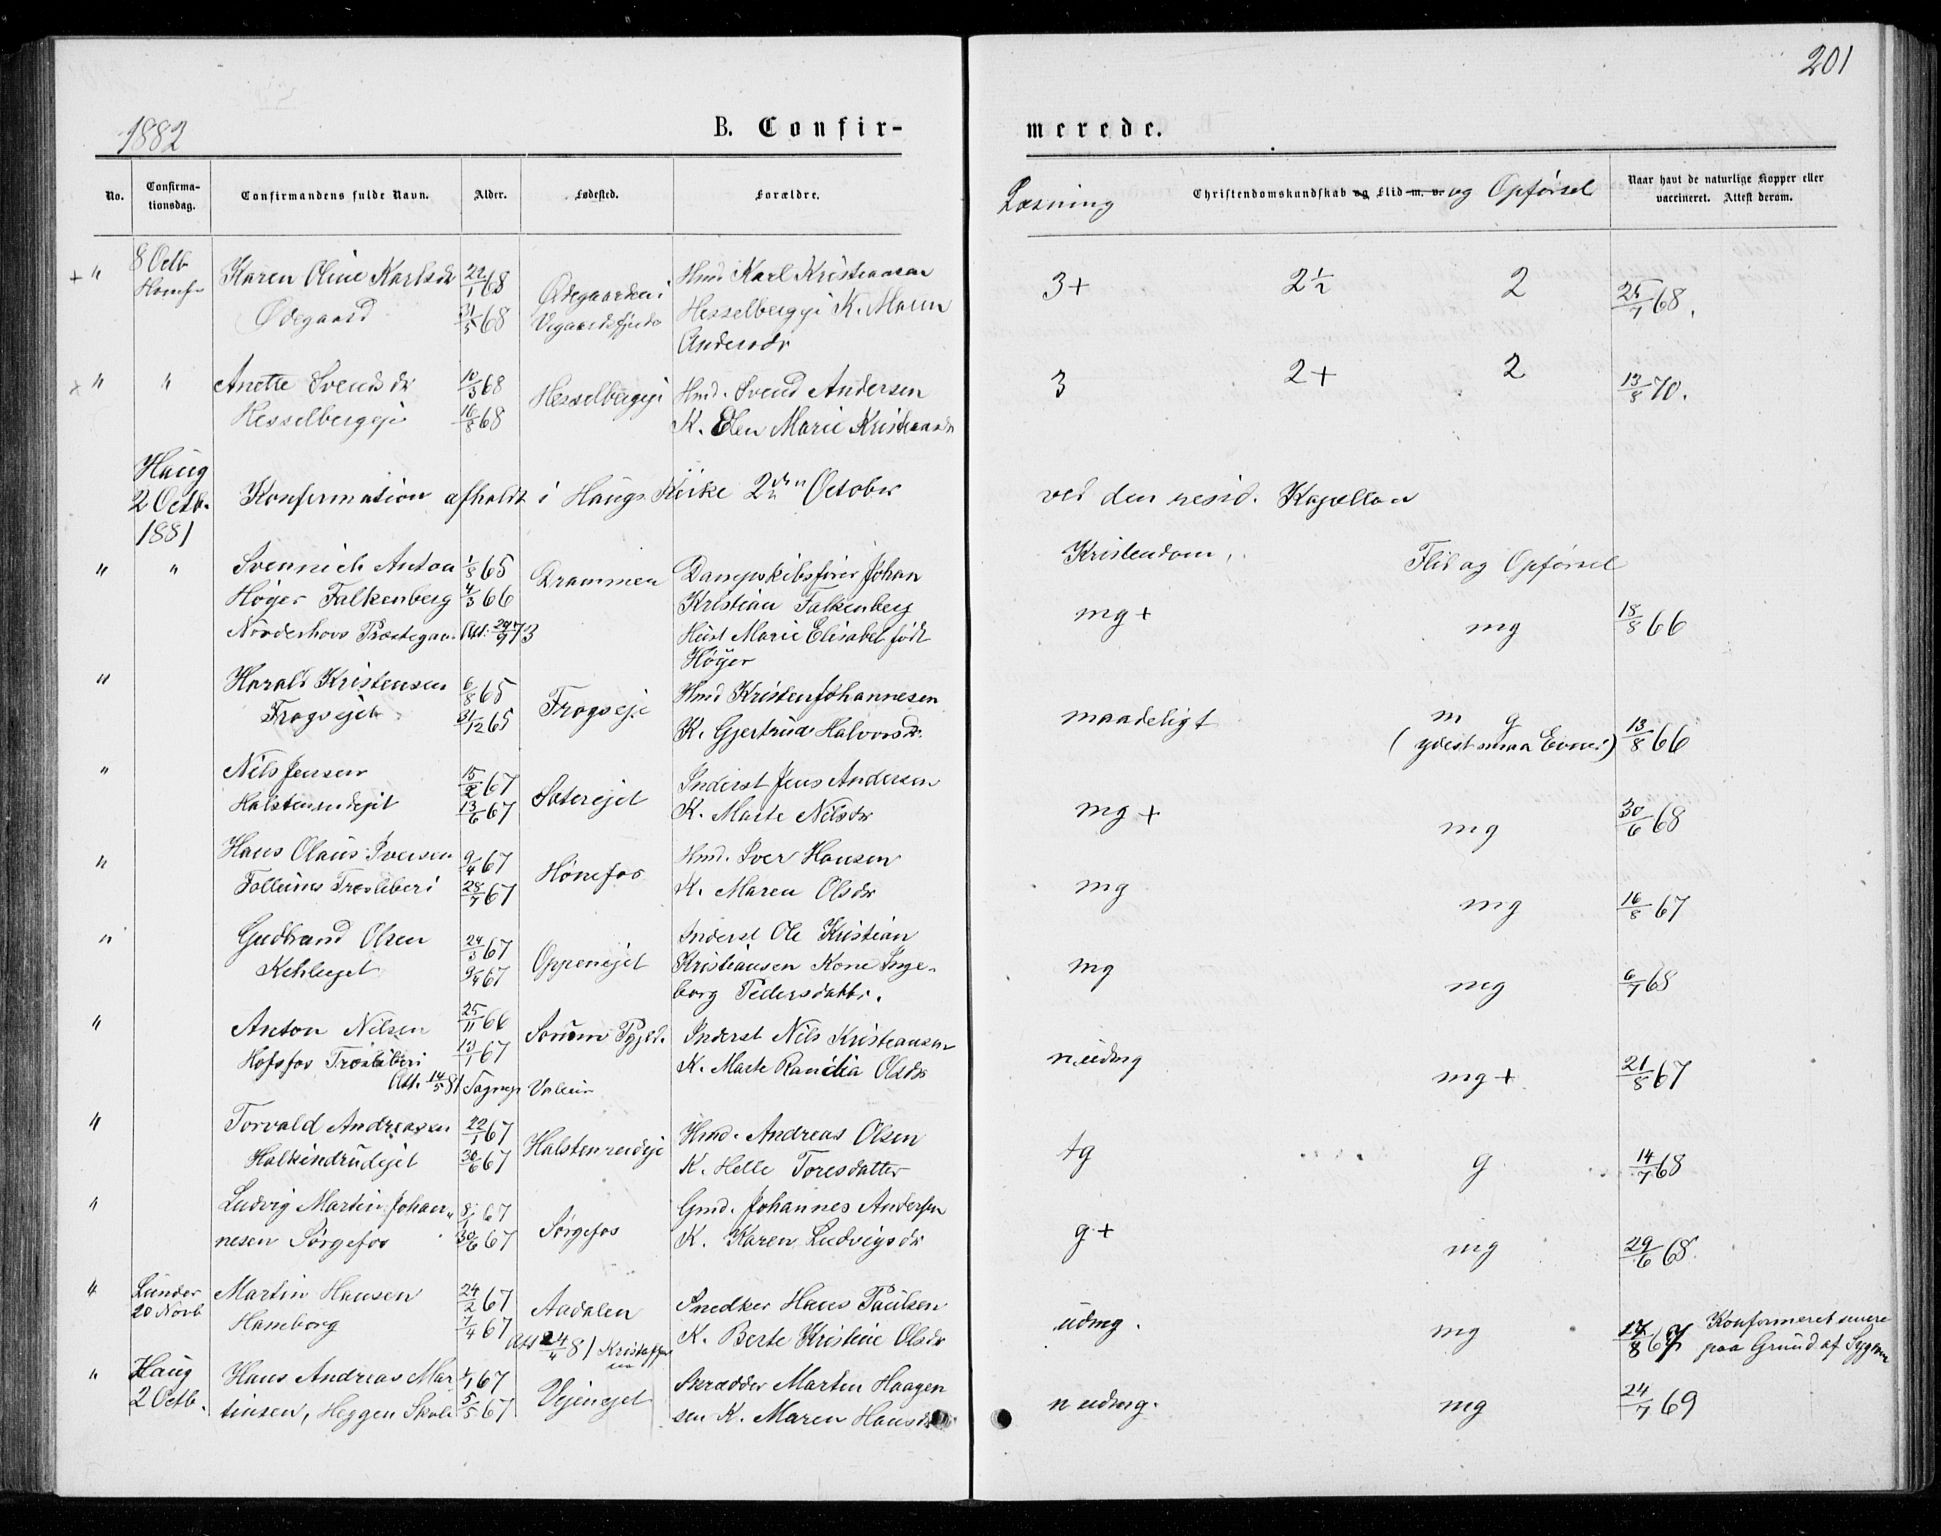 201
1882
B. Confir-
merede.
No.
Confirma-
tionsdag.
Confirmandens fulde Navn.
Alder.
Fødested.
Forældre.
Læsning
Christendomskundskab og Flid m. v. og Opførsel
Naar havt de naturlige Kopper eller
vaccineret. Attest derom.
+ " 8 Octb Karen Oline Karlsdr 22/1 68 Hmd Karl Kristiansen 3+ 2½ 2 25/7 68.
Honef
Ødegaard 31/5 68 Ødegaarden i Hesselbergeje K. Maren
Andersdr
" " Anette Svendsdr 10/3 68 Hesselbergeje Hmd. Svend Andersen 3 2+ 2 13/8 70.
Hesselbergeje 16/8 68 K. Elen Marie Kristiansdr
Haug
2 Octb. Konfirmation afholdt i Haugs Kirke 2den October ved den resid. Kapellan
1881
Kristendom, Flid og Opførsel
" " Svennich Anton 1/8 65 Drammen Dampskibsfører Johan
Høyer Falkenberg 4/3 66 Kristian Falkenberg mg+ mg 18/8 66
Norderhovs Præstegaa Att. 24/9 73 Hust Marie Elisabet født
Høyer
" Harald Kristensen 6/8 65 Frogseje Hmd Kristen Johannesen maadeligt m g 13/8 66
Frogsejet 31/12 65 K. Gjertrud Halvorsdr. (yderst smaa Evner)
" Nils Jensen 15/2 67 Seterejet Inderst Jens Andersen mg+ mg 30/6 68
Halstenrudejet 13/6 67 K. Marte Nilsdr
" Hans Olaus Iversen 9/4 67 Hønefos Hmd. Iver Hansen mg mg 16/8 67
Follums Træsliberi 28/7 67 K. Maren Olsdr
" Gudbrand Olsen 24/3 67 Oppenejet Inderst Ole Kristian mg mg 6/7 68
9/4 67 Kristiansen Kone Inge-
borg Pedersdattr.
" Anton Nilsen 25/11 66 Inderst Nils Kristiansen n.udmg mg+ 21/8 67
Hofsfos Træsliberi 13/1 67 K. Marte Randia Olsdr
Att. 14/5 81
" Torvald Andreasen 22/1 67 Halstenrudeje Hmd. Andreas Olsen tg g 14/7 68
30/6 67 K. Helle Toresdatter
" Ludvig Martin Johan- 8/1 67 Sørgefos Gmd. Johannes Andersen g+ mg 29/6 68.
nesen Sørgefos 30/6 67 K. Karen Ludvigsdr
" Lunder Martin Hansen 24/2 67 Aadalen Snedker Hans Paulsen udmg. mg 17/8 67 Konfirmeret senere
20 Novb Honeborg 7/4 67 Att 24/4 81 K. Berte Kristine Olsdr paa Grund af Sygdom
" Haug Hans Andreas Mar 4/1 67 Vejenejet Skrædder Martin Haagen n udmg. mg 24/7 69
2 Octb. tinsen, Heggen Skole 5/5 67 sen K. Maren Hansdr